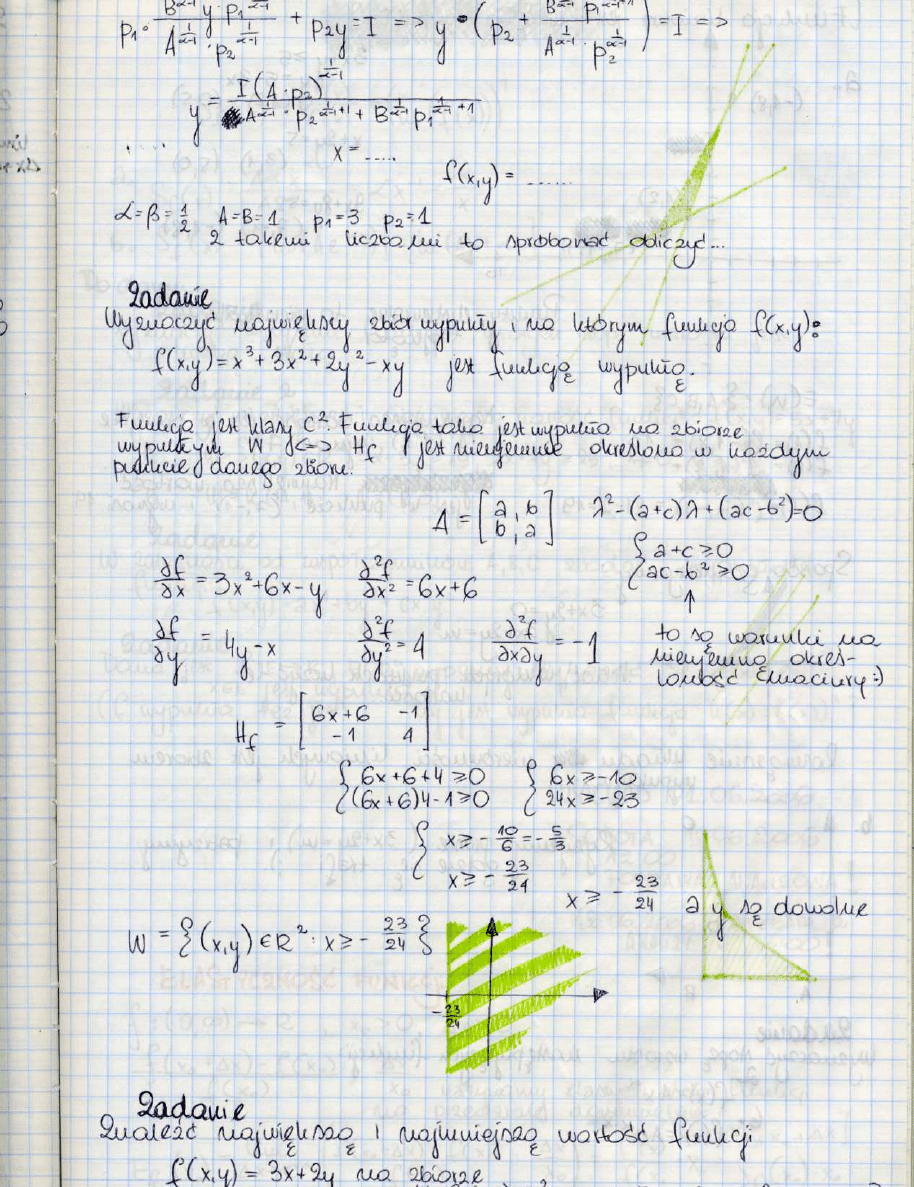 p₁· B^{1/α-1} y · p₁^{1/α-1} / A^{1/α-1} · p₂^{1/α-1} + p₂y = I => y • (p₂ + B^{1/α-1} p₁^{1/α-1+1} / A^{1/α-1} p₂^{1/α-1}) = I =>
y = I(A · p₂)^{1/α-1} / A^{1/α-1} · p₂^{1/α-1+1} + B^{1/α-1} p₁^{1/α-1+1}
.... x = ....
f(x,y) = ......
α=β=1/2 A=B=1 p₁=3 p₂=1
z takimi liczbami to spróbować obliczyć...
Zadanie
Wyznaczyć największy zbiór wypukły, na którym funkcja f(x,y):
f(x,y)=x³+3x²+2y²-xy jest funkcją wypukłą.
Funkcja jest klasy C². Funkcja taka jest wypukła na zbiorze
wypukłym W <=> H_f jest nieujemnie określona w każdym
punkcie danego zbioru.
A = [a, b; b, a] λ²-(a+c)λ+(ac-b²)=0
{a+c ≥0
ac-b² ≥0
∂f/∂x = 3x²+6x-y ∂²f/∂x² = 6x+6
↑
∂f/∂y = 4y-x ∂²f/∂y² = 4 ∂²f/∂x∂y = -1
to są warunki na
nieujemną okreś-
loność macierzy:)
H_f = [6x+6 -1; -1 4]
{6x+6+4 ≥0 {6x ≥ -10
(6x+6)4-1 ≥0 24x ≥ -23
{x ≥ -10/6 = -5/3
x ≥ -23/24
x ≥ -23/24 a y są dowolne
W = {(x,y)∈R²: x ≥ -23/24}
-23/24
Zadanie
Znaleźć największą i najmniejszą wartość funkcji
f(x,y) = 3x+2y na zbiorze